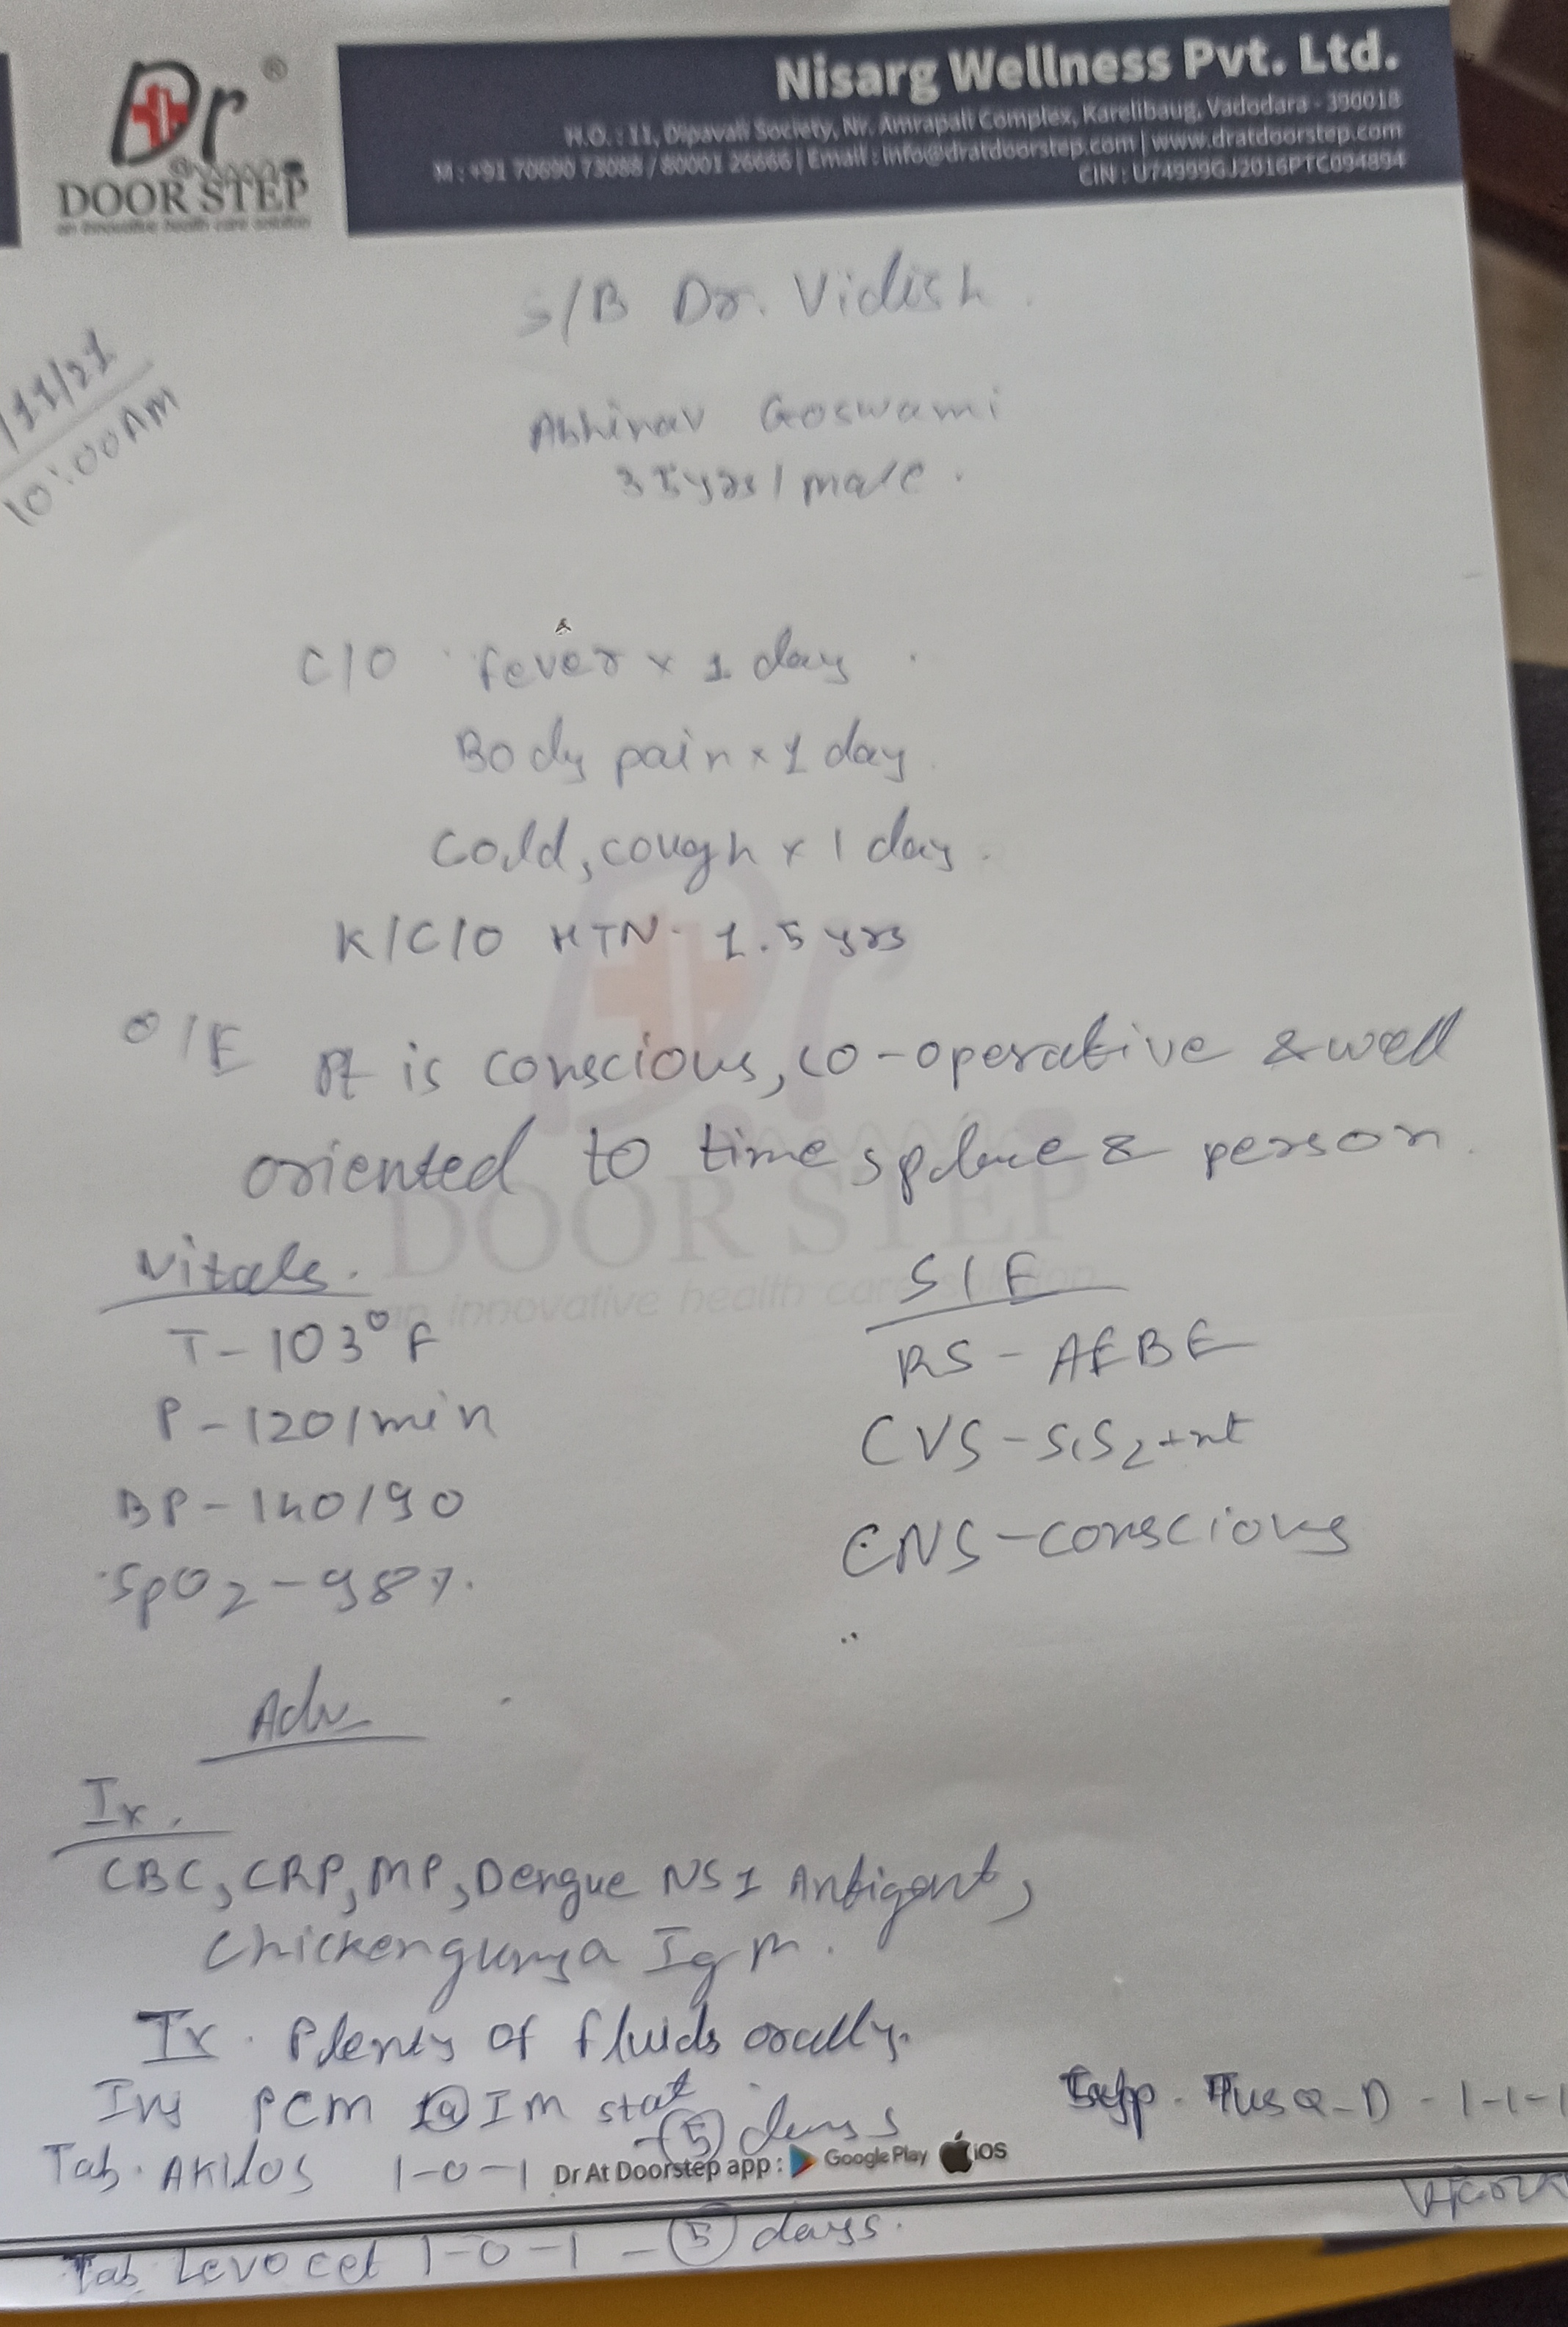 Dr ®
@
DOOR STEP
an innovative health care solution
Nisarg Wellness Pvt. Ltd.
H.O. : 11, Dipavali Society, Nr. Amrapali Complex, Karelibaug, Vadodara - 390018
M : +91 70690 73088 / 80001 26666 | Email : info@dratdoorstep.com | www.dratdoorstep.com
CIN : U74999GJ2016PTC094894
/11/21
10:00AM
S/B Dr. Vidish.
Abhinav Goswami
35yrs/male.
C/O fever x 1 day
Body pain x 1 day.
Cold, cough x 1 day.
K/C/O HTN - 1.5 yrs
O/E Pt is conscious, co-operative & well
oriented to time, place & person.
Vitals.
T - 103°F
P - 120/min
BP - 140/90
SpO2 - 98%.
S/E
RS - AEBE
CVS - S1S2+nt
CNS - conscious
Dr
DOOR STEP
an innovative health care solution
Adv
Ix.
CBC, CRP, MP, Dengue NS1 Antigent,
Chickengunya IgM.
Tx. Plenty of fluids orally.
Inj PCM IM stat
Syp. Tus Q-D - 1-1-1
Tab. AKILOS 1-0-1 - 5 days
Dr At Doorstep app : Google Play iOS
Tab. Levocet 1-0-1 - 5 days.